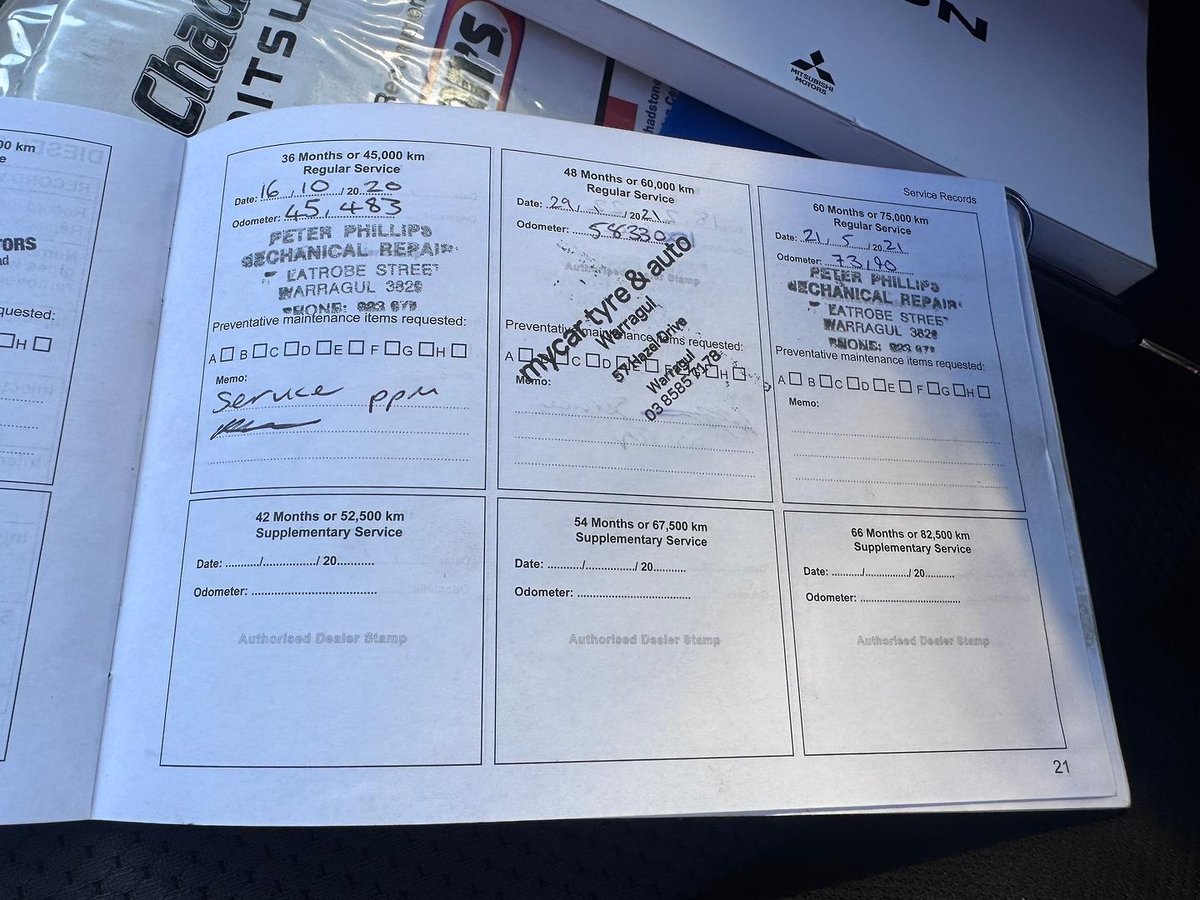 Chad
MITSU
MITSUBISHI
MOTORS
00 km
Service Records
36 Months or 45,000 km
Regular Service
Date: 16 / 10 / 20 20
Odometer: 45,483
PETER PHILLIPS
MECHANICAL REPAIR
LATROBE STREET
WARRAGUL 3820
PHONE:
Preventative maintenance items requested:
A B C D E F G H
Memo:
Service ppm
48 Months or 60,000 km
Regular Service
Date: 29 / 1 / 20 21
Odometer: 58330
Authorised Dealer Stamp
mycar tyre & auto
Warragul
57 Hazel Drive
Warragul
03 8585 7178
Preventative maintenance items requested:
A C D E F H
Memo:
60 Months or 75,000 km
Regular Service
Date: 21 / 5 / 20 21
Odometer: 73,190
PETER PHILLIPS
MECHANICAL REPAIR
LATROBE STREET
WARRAGUL 3820
PHONE:
Preventative maintenance items requested:
A B C D E F G H
Memo:
42 Months or 52,500 km
Supplementary Service
Date: ........../................/ 20...........
Odometer: ....................................
Authorised Dealer Stamp
54 Months or 67,500 km
Supplementary Service
Date: ........../................/ 20..........
Odometer: .................................
Authorised Dealer Stamp
66 Months or 82,500 km
Supplementary Service
Date: ........../............../ 20...........
Odometer: .............................
Authorised Dealer Stamp
TORS
uested:
H
21